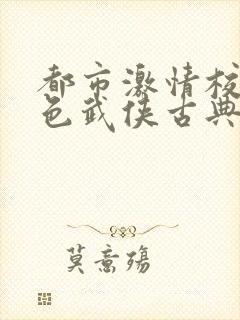 都市激情校
色武侠古典
莫意殇